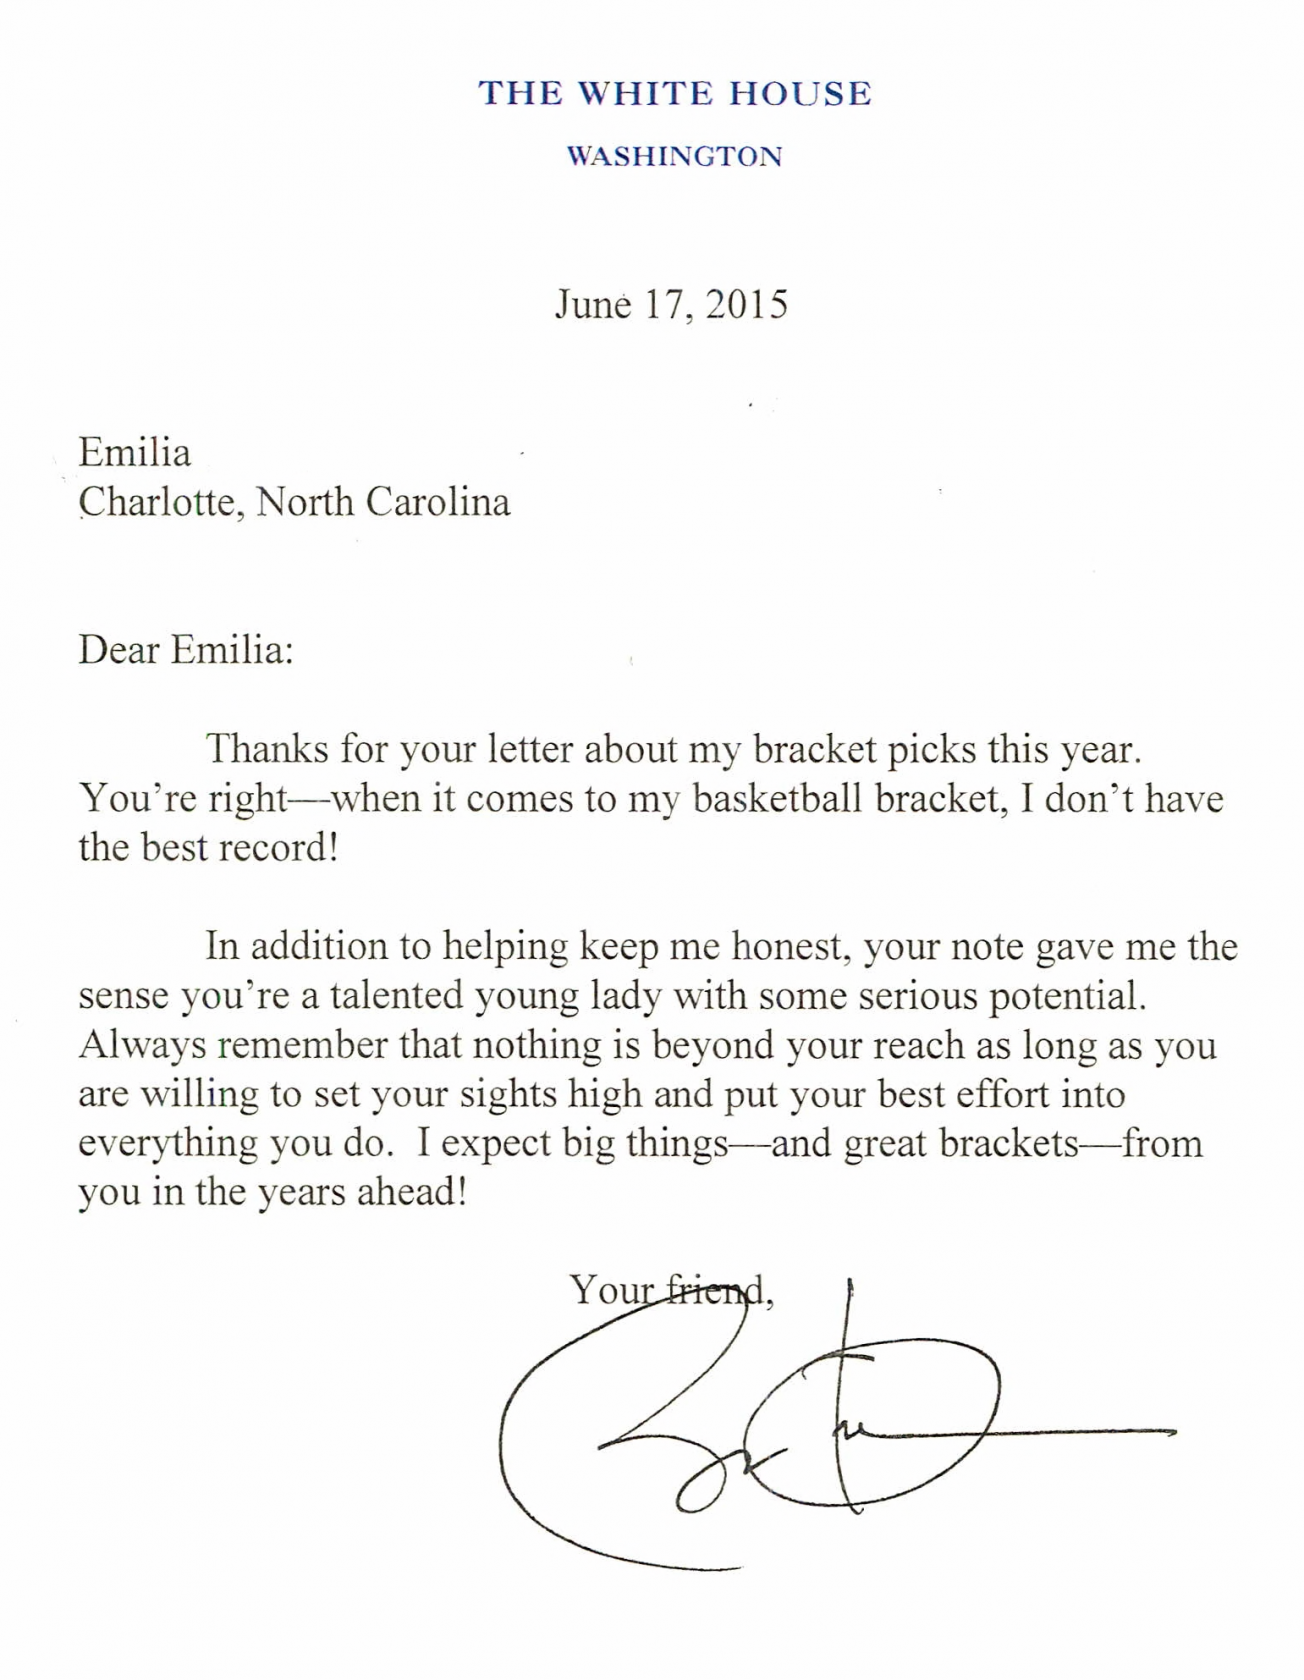 THE WHITE HOUSE
WASHINGTON
June 17, 2015
Emilia
Charlotte, North Carolina
Dear Emilia:
Thanks for your letter about my bracket picks this year.
You're right—when it comes to my basketball bracket, I don't have
the best record!
In addition to helping keep me honest, your note gave me the
sense you're a talented young lady with some serious potential.
Always remember that nothing is beyond your reach as long as you
are willing to set your sights high and put your best effort into
everything you do.  I expect big things—and great brackets—from
you in the years ahead!
Your friend,